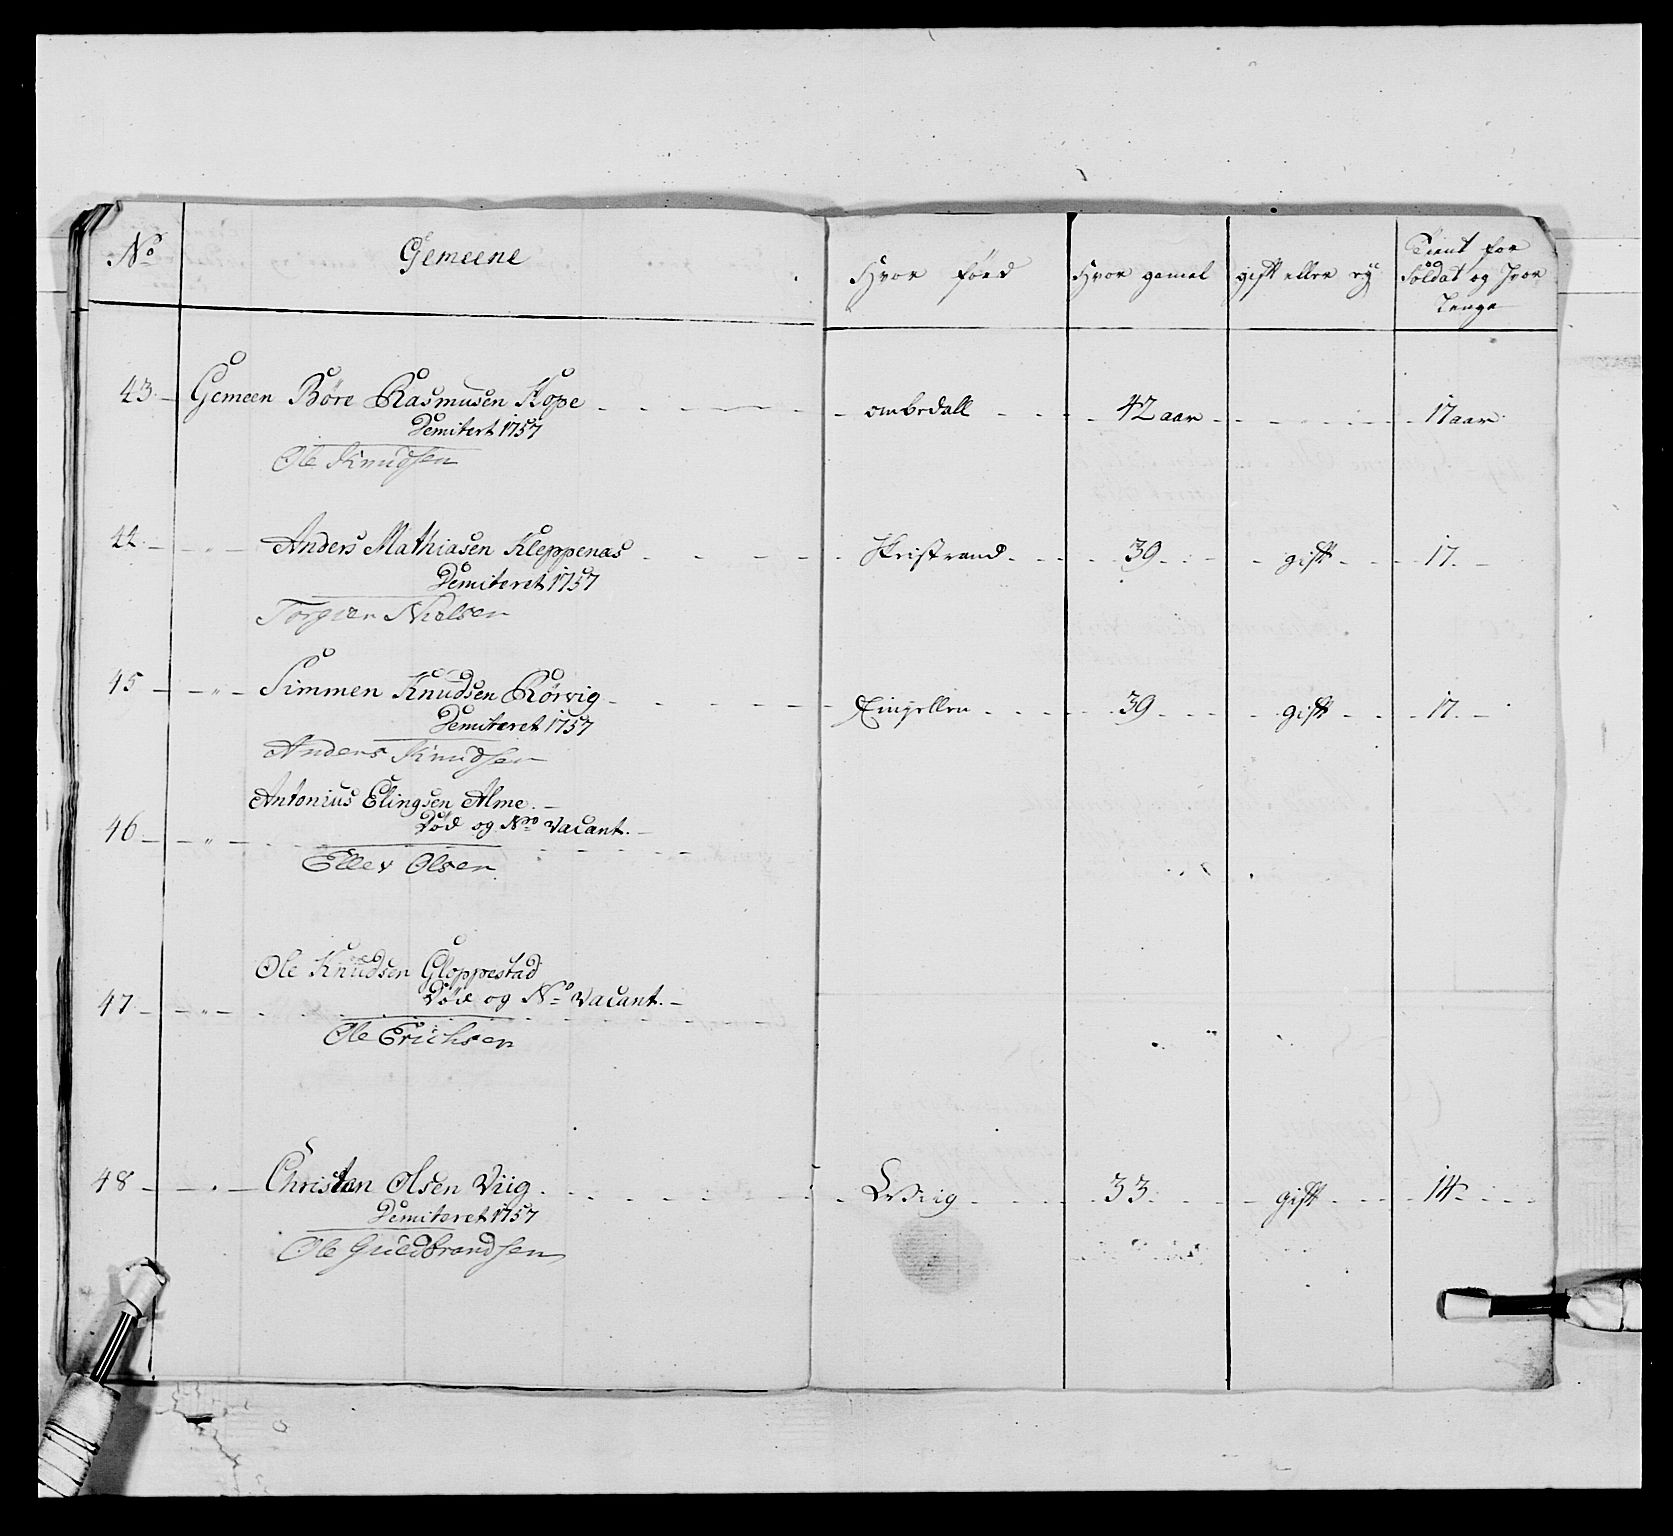 No Gemeene Hvor föed Hvor gamel gift eller ey Tient for
Soldat og Hvor
Lenge
43 Gemeen Böre Rasmusen Kope ombrdall 42 aar 17 aar
Demitert 1757
Ole Knudsen
44 " Anders Mathiasen Kleppenas 39 gift 17
Demiteret 1757
Torgier Nielsen
45 " Simmen Knudsen Rörvig 39 gift 17
Demiteret 1757
Anders Knudsen
Antonius Elingsen Alme
46 " Död og No Vacant
Ellev Olsen
Ole Knudsen Gloppestad
47 " Död og No Vacant
Ole Erichsen
48 " Christen Olsen Viig 33 gift 14
Demiteret 1757
Ole Guldbrandsen